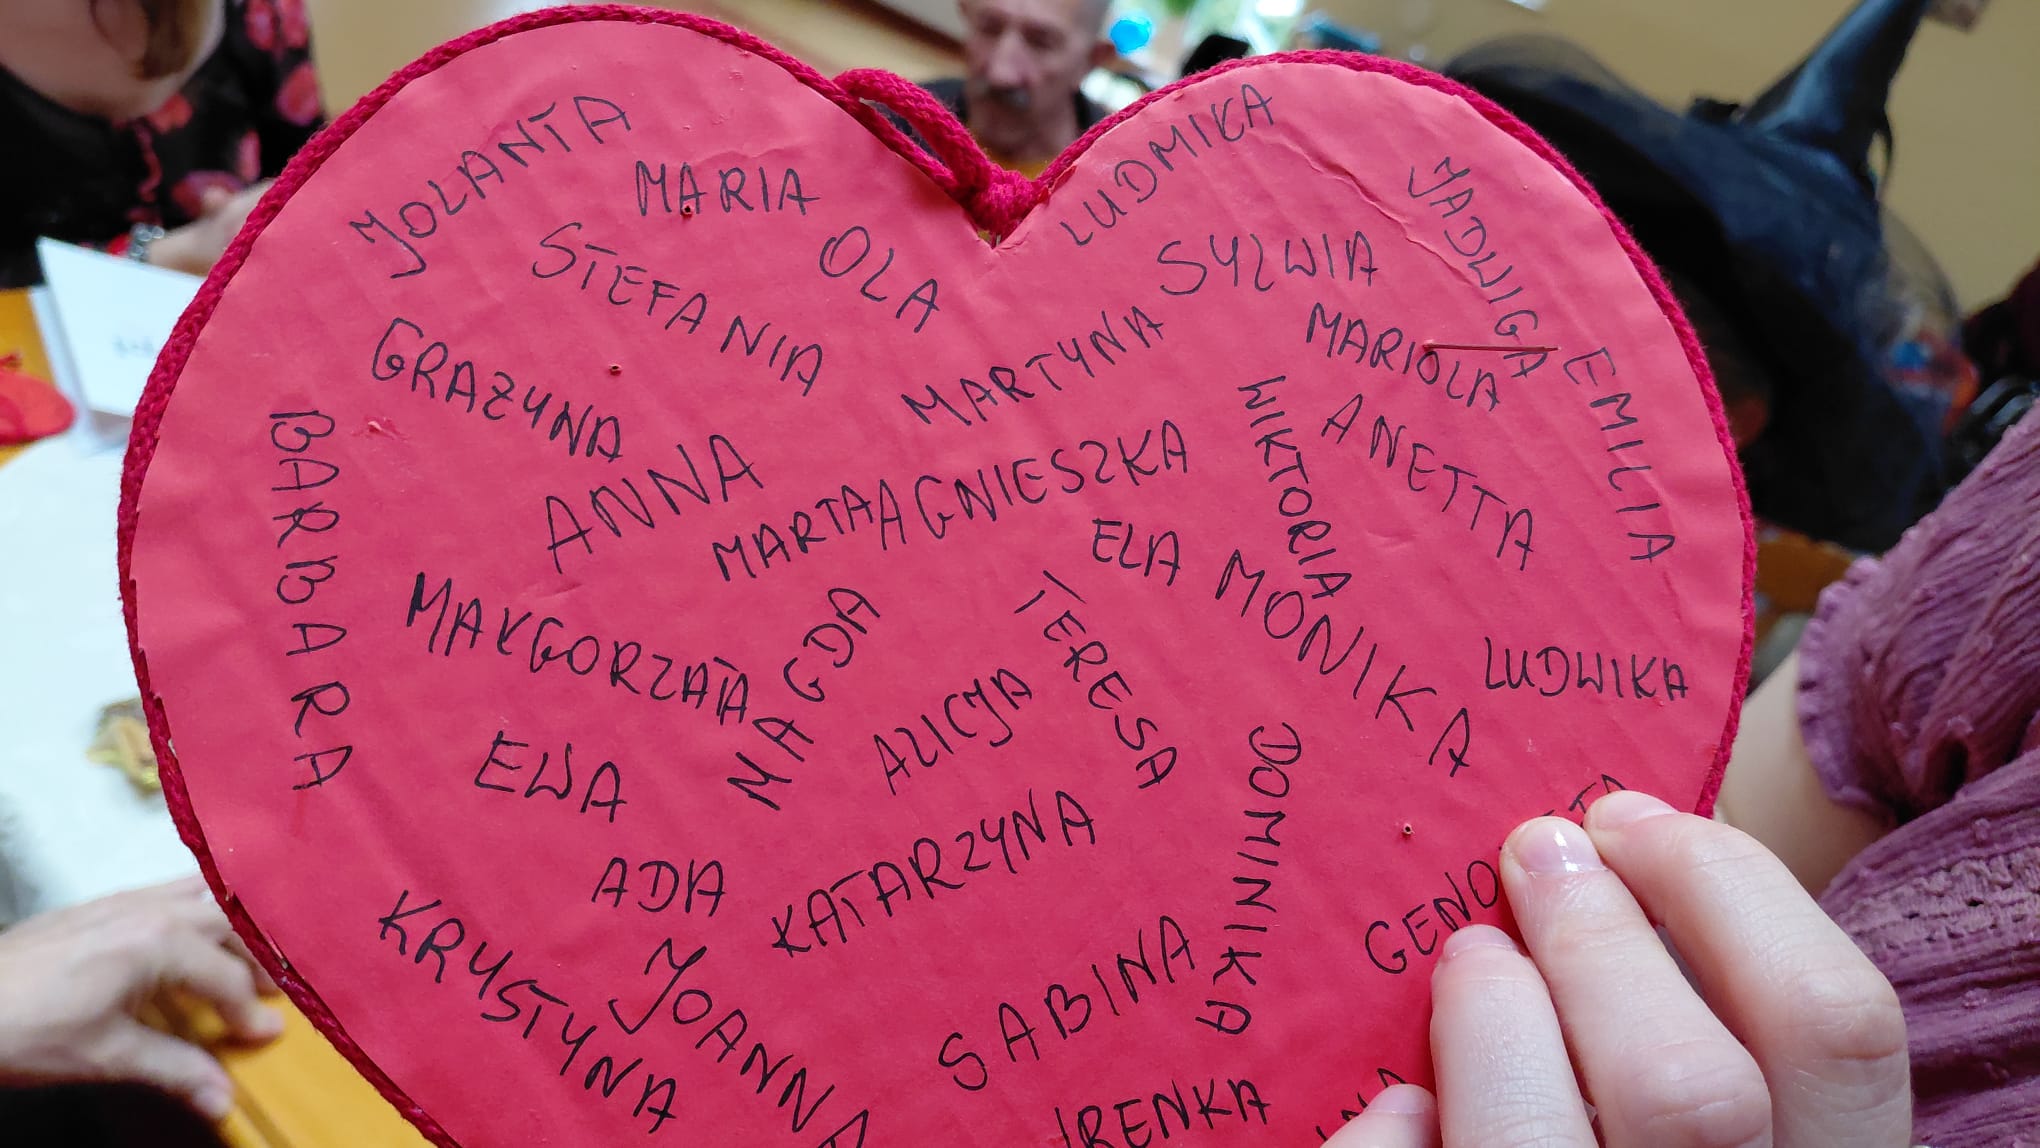 JOLANTA
MARIA
LUDMIKA
STEFANIA
OLA
SYLWIA
JADWIGA
GRAZYNA
MARTYNA
MARIOLA
EMILIA
BARBARA
ANNA
MARTA
AGNIESZKA
WIKTORIA
ANETTA
ELA
MAŁGORZATA
MAGDA
TERESA
MONIKA
LUDWIKA
EWA
ALICJA
DOMINIKA
ADA
KATARZYNA
KRYSTYNA
JOANNA
SABINA
IRENKA